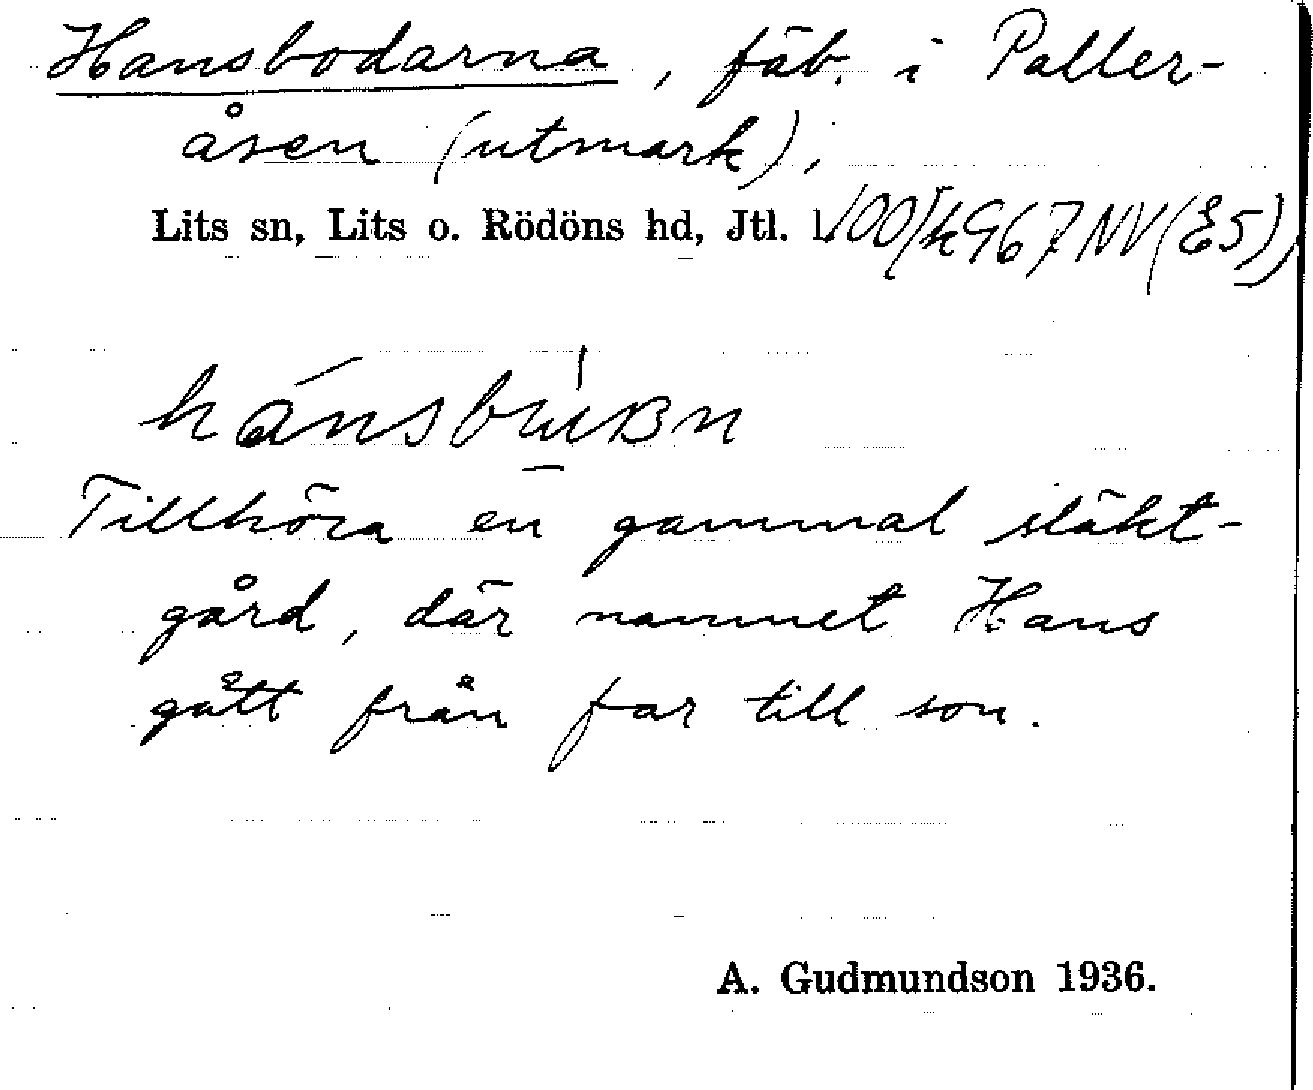 Hansbodarna, fäb. i Paller-
åsen (utmark),
Lits sn, Lits o. Rödöns hd, Jtl. l.
Tillhöra en gammal släkt-
gård, där namnet Hans
gått från far till son.
A. Gudmundson 1936.